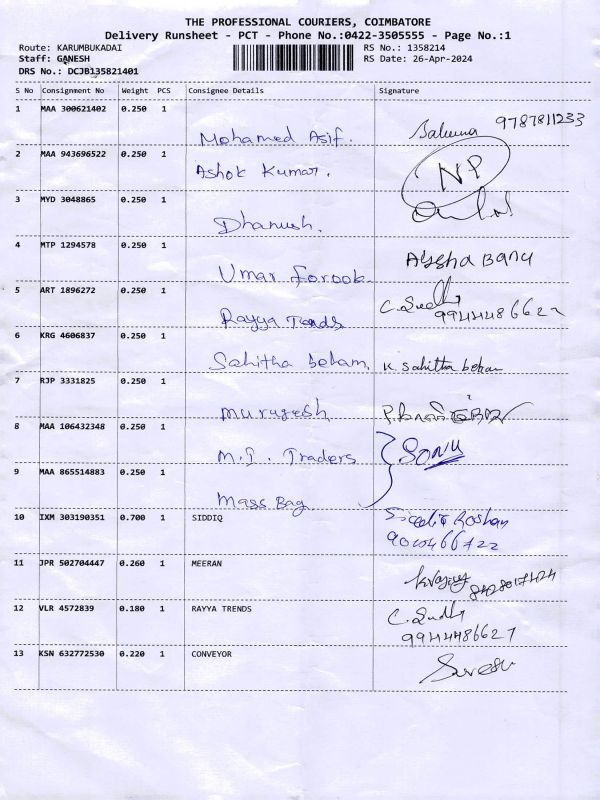 THE PROFESSIONAL COURIERS, COIMBATORE
Delivery Runsheet - PCT - Phone No.:0422-3505555 - Page No.:1
Route: KARUMBUKADAI RS No.: 1358214
Staff: GANESH RS Date: 26-Apr-2024
DRS No.: DCJB135821401
S No Consignment No Weight PCS Consignee Details Signature
1 MAA 300621402 0.250 1
Mohamed Asif. 9787811233
2 MAA 943696522 0.250 1
Ashok Kumar. NP
3 MYD 3048865 0.250 1
Dhanush.
4 MTP 1294578 0.250 1
Umar Forook Aysha Banu
5 ART 1896272 0.250 1
Rayya Trends C. Sudha
6 KRG 4606837 0.250 1
Sahitha beham, K. Sahitha beham
7 RJP 3331825 0.250 1
Murugesh
8 MAA 106432348 0.250 1
M.I. Traders Sonu
9 MAA 865514883 0.250 1
Mass Bag
10 IXM 303190351 0.700 1 SIDDIQ
11 JPR 502704447 0.260 1 MEERAN
12 VLR 4572839 0.180 1 RAYYA TRENDS C. Sudha
9944486627
13 KSN 632772530 0.220 1 CONVEYOR Suresh